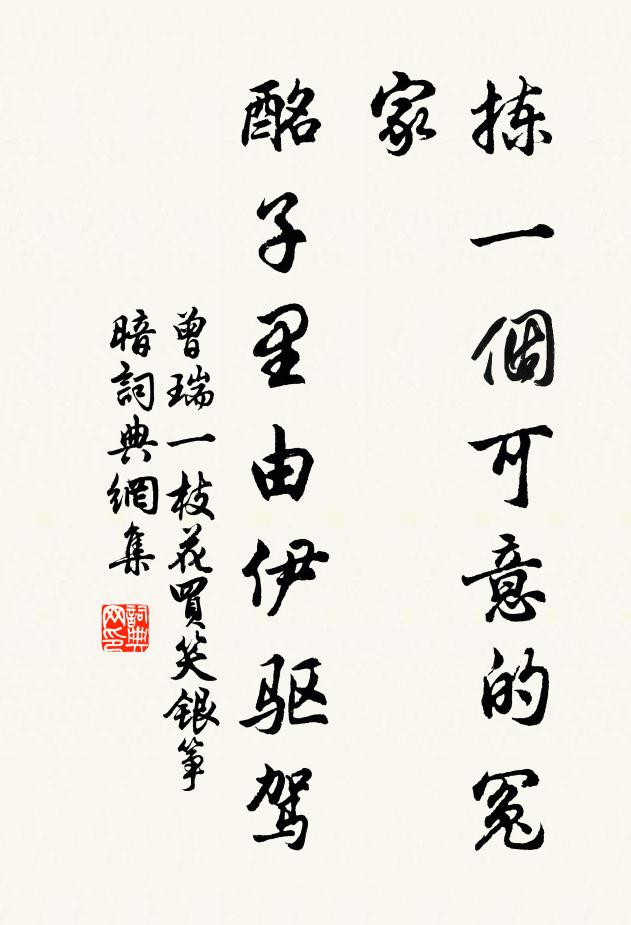 拣一個可意的冤
家
酩子里由伊驱駕
曾瑞一枝花買笑銀箏
暗詞典網集
詞典
网印